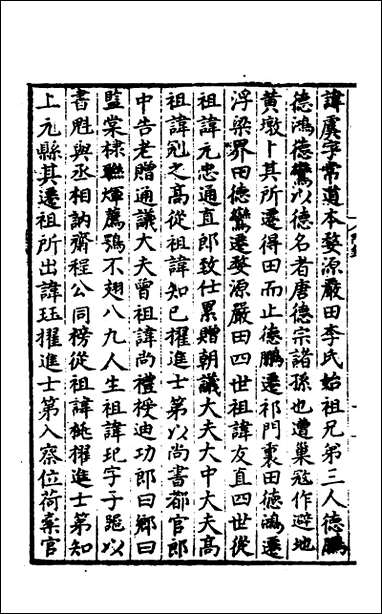 諱虞字常道本婺源嚴田李氏始祖兄弟三人德鵬
德鴻德鸞以德名者唐德宗諸孫也遭巢寇作避地
黃墩卜其所遷得田而止德鵬遷祁門裏田德鴻遷
浮梁界田德鸞遷婺源嚴田四世祖諱友直四世從
祖諱元忠通直郎致仕累贈朝議大夫大中大夫高
祖諱冠之高從祖諱知已擢進士第以尚書都官郎
中告老贈通議大夫曾祖諱尚禮授迪功郎曰鄉曰
監棠棣聯煇薦鶚不翅八九人生祖諱玘字子範以
書魁與丞相訥齋程公同榜從祖諱擢進士第知
上元縣其遷祖所出諱珏擢進士第入察位荷橐官